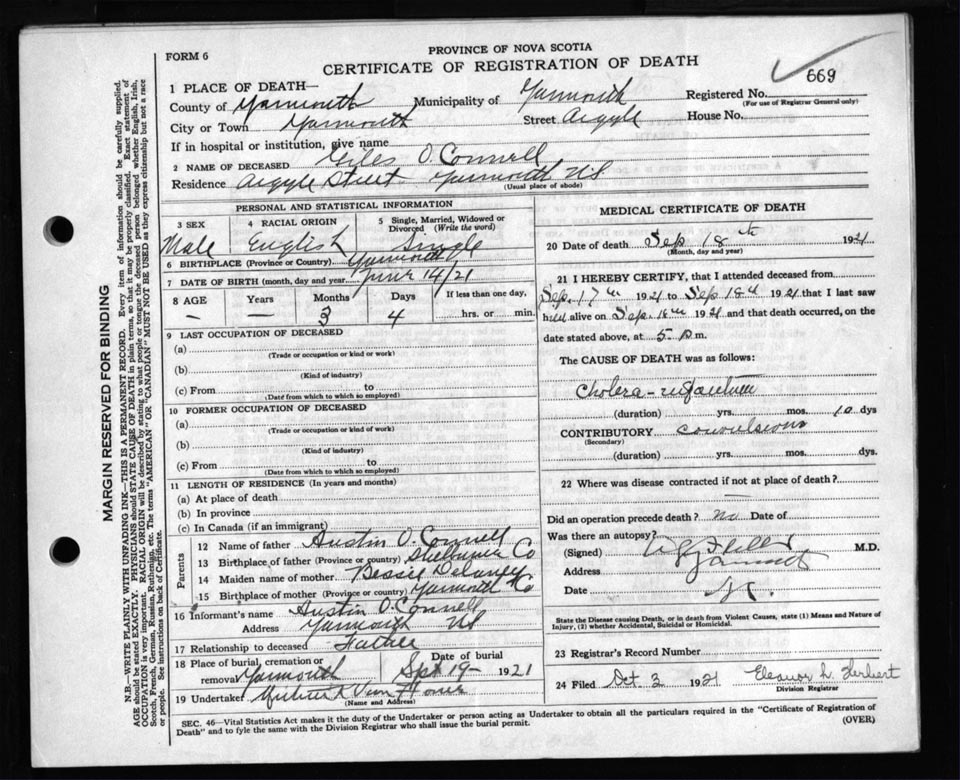 PROVINCE OF NOVA SCOTIA
FORM 6
CERTIFICATE OF REGISTRATION OF DEATH
669
1 PLACE OF DEATH—
County of Yarmouth Municipality of Yarmouth Registered No.
(For use of Registrar General only)
City or Town Yarmouth Street Argyle House No.
If in hospital or institution, give name
2 NAME OF DECEASED Giles O'Connell
Residence Argyle Street Yarmouth NS
(Usual place of abode)
PERSONAL AND STATISTICAL INFORMATION
3 SEX 4 RACIAL ORIGIN 5 Single, Married, Widowed or Divorced (Write the word)
Male English Single
6 BIRTHPLACE (Province or Country) Yarmouth
7 DATE OF BIRTH (month, day and year) June 14/21
8 AGE Years Months Days If less than one day,
— — 3 4 hrs. or min.
9 LAST OCCUPATION OF DECEASED
(a)
(Trade or occupation or kind or work)
(b)
(Kind of industry)
(c) From to
(Date from which to which so employed)
10 FORMER OCCUPATION OF DECEASED
(a)
(Trade or occupation or kind of work)
(b)
(Kind of industry)
(c) From to
(Date from which to which so employed)
11 LENGTH OF RESIDENCE (In years and months)
(a) At place of death
(b) In province
(c) In Canada (if an immigrant)
Parents
12 Name of father Austin O'Connell
13 Birthplace of father (Province or country) Shelburne Co
14 Maiden name of mother Bessie Delaney
15 Birthplace of mother (Province or country) Yarmouth Co
16 Informant's name Austin O'Connell
Address Yarmouth NS
17 Relationship to deceased Father
18 Place of burial, cremation or Date of burial
removal Yarmouth Sept 19- 1921
19 Undertaker
(Name and Address)
MEDICAL CERTIFICATE OF DEATH
20 Date of death Sep 18th 1921
(Month, day and year)
21 I HEREBY CERTIFY, that I attended deceased from
Sep. 17th 1921 to Sep 18th 1921 that I last saw
h alive on Sep. 18th 1921 and that death occurred, on
date stated above, at 5 pm.
The CAUSE OF DEATH was as follows:
Cholera-infantum
(duration) yrs. mos. 10 dys
CONTRIBUTORY convulsions
(Secondary)
(duration) yrs. mos. dys.
22 Where was disease contracted if not at place of death?
—
Did an operation precede death? no Date of
Was there an autopsy?
(Signed) M.D.
Address Yarmouth
N.S.
State the Disease causing Death, or in death from Violent Causes, state (1) Means and Nature of
Injury, (2) whether Accidental, Suicidal or Homicidal.
23 Registrar's Record Number
24 Filed Oct 3 1921 Eleanor L. Herbert
Division Registrar
SEC. 46—Vital Statistics Act makes it the duty of the Undertaker or person acting as Undertaker to obtain all the particulars required in the "Certificate of Registration of
Death" and to fyle the same with the Division Registrar who shall issue the burial permit.
(OVER)
MARGIN RESERVED FOR BINDING
N.B.—WRITE PLAINLY WITH UNFADING INK—THIS IS A PERMANENT RECORD. Every item of information should be carefully supplied.
AGE should be stated EXACTLY. PHYSICIANS should STATE CAUSE OF DEATH in plain terms, so that it may be properly classified. Exact statement of
OCCUPATION is very important. RACIAL ORIGIN will be described by stating to what people or tongue the deceased person belonged whether English, Irish,
Scotch, French, German, Russian, Ruthenian, etc. The terms "AMERICAN" OR "CANADIAN" MUST NOT BE USED as they express citizenship but not a race
or people. See instructions on back of Certificate.